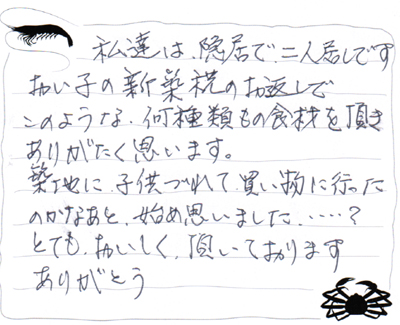 私達は、隠居で、二人居しです
おい子の新築祝のお返しで
このような、何種類もの食材を頂き
ありがたく思います。
築地に、子供づれで、買い物に行った
のかなあと、始め思いました、……?
とても、おいしく、頂いております
ありがとう